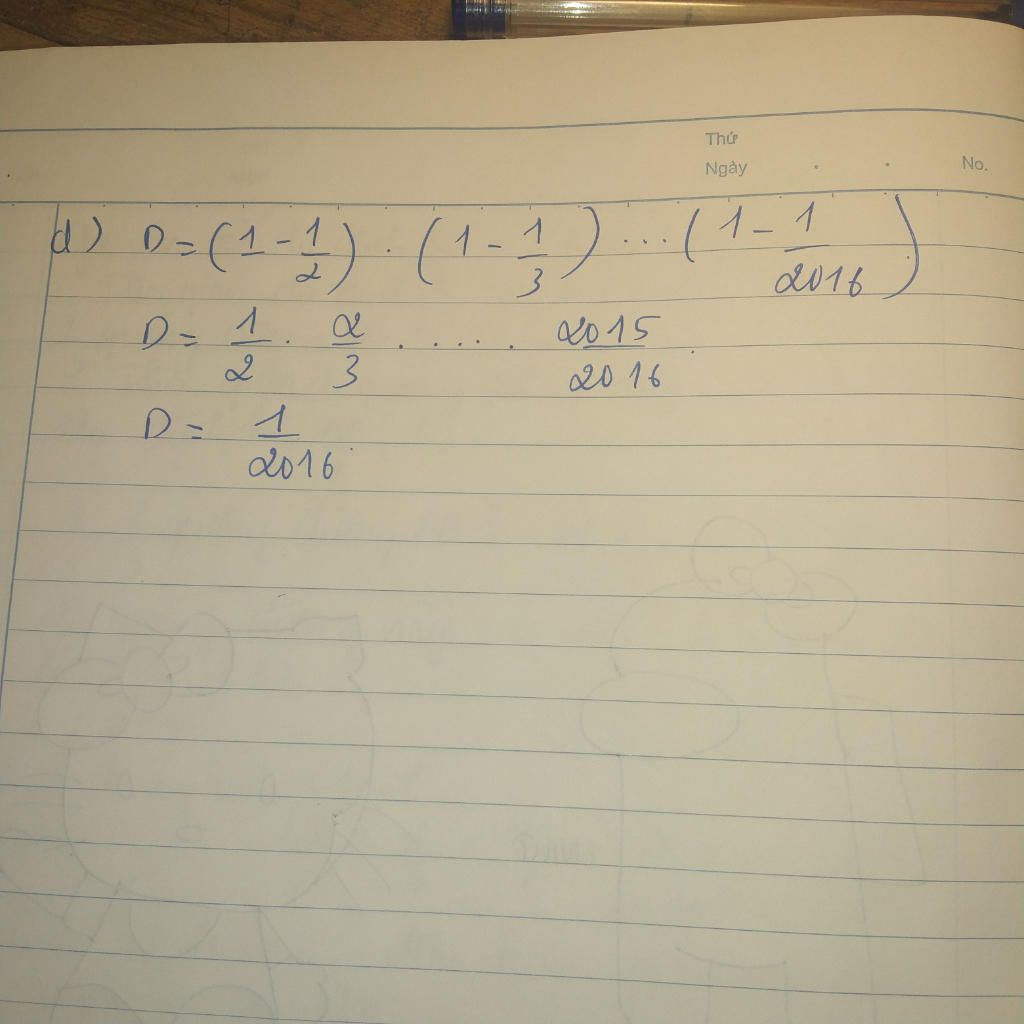 Thứ
Ngày . . No.
d) D = (1 - 1/2) . (1 - 1/3) ... (1 - 1/2016)
D = 1/2 . 2/3 . ..... 2015/2016
D = 1/2016